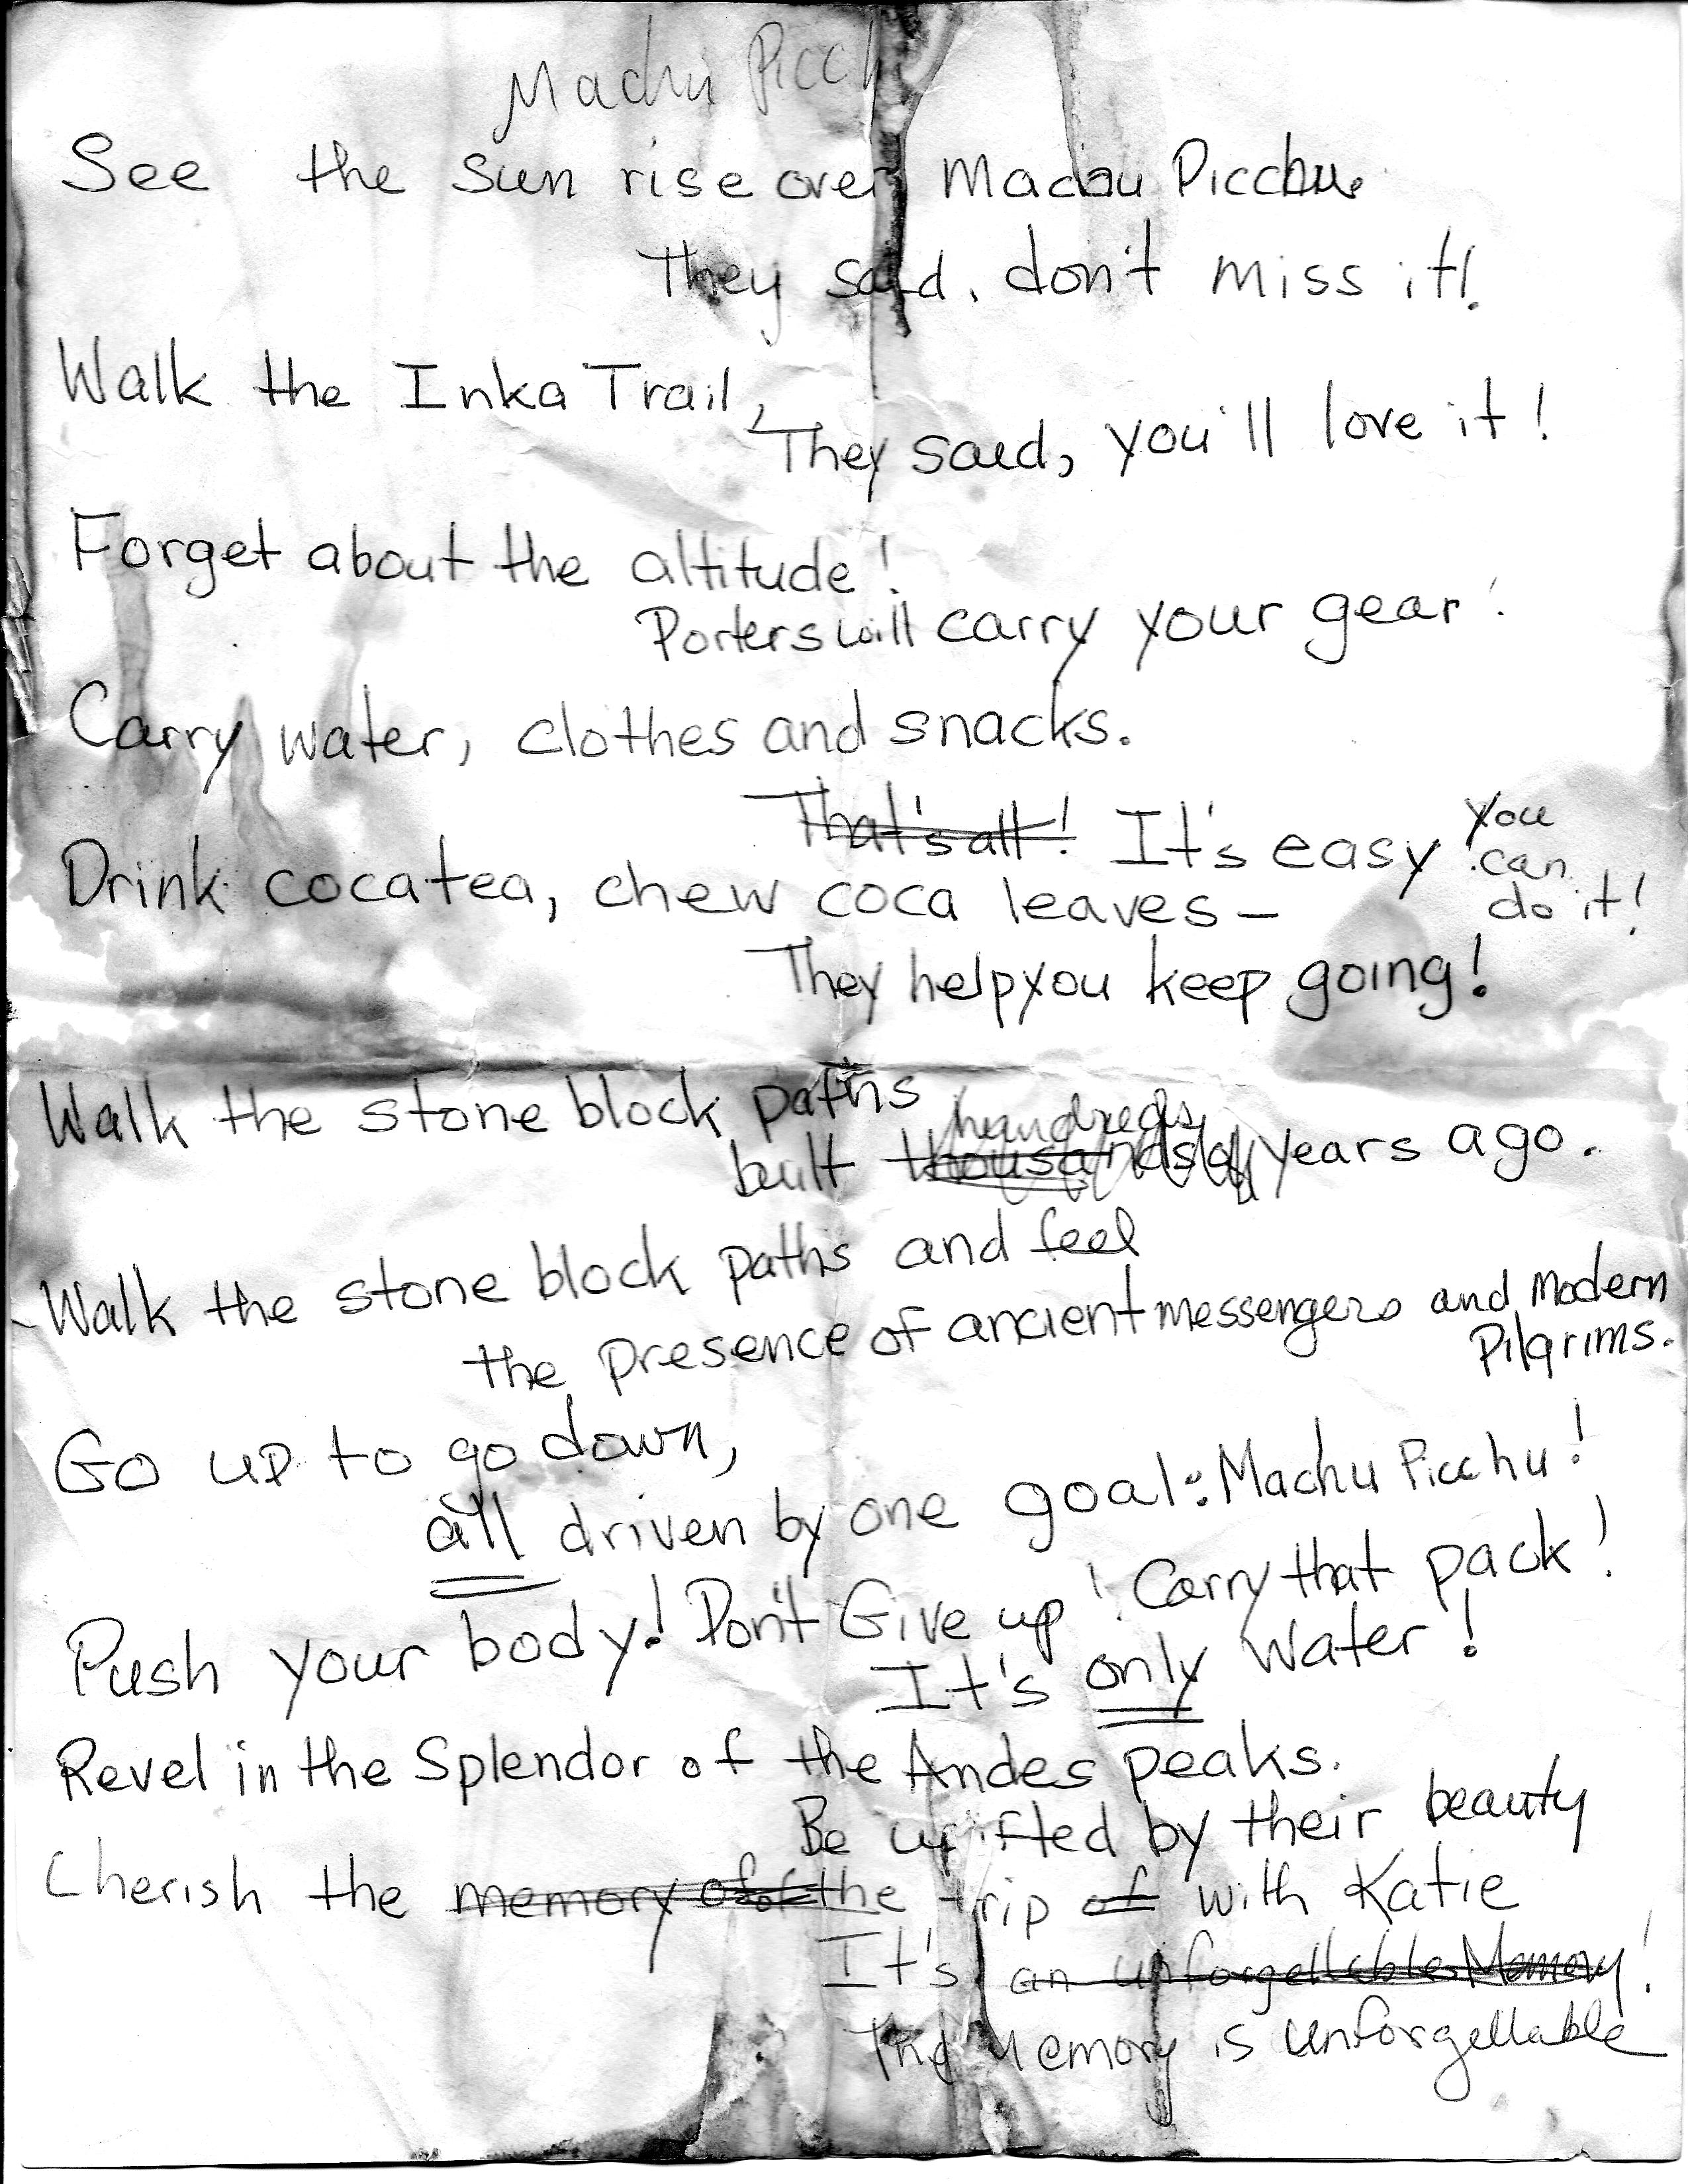 Machu Picch
See the sun rise over Machu Picchu
They said, don't miss it!
Walk the Inka Trail,
They said, you'll love it!
Forget about the altitude!
Porters will carry your gear!
Carry water, clothes and snacks.
That's all! It's easy you can do it!
Drink coca tea, chew coca leaves—
They help you keep going!
Walk the stone block paths
hundreds
built thousands of years ago.
Walk the stone block paths and feel
the presence of ancient messengers and Modern
Pilgrims.
Go up to go down,
all driven by one goal: Machu Picchu!
Push your body! Don't Give up! Carry that pack!
It's only Water!
Revel in the Splendor of the Andes peaks.
Be uplifted by their beauty
Cherish the memory of the trip of with Katie
It's an unforgettable Memory!
The Memory is unforgettable